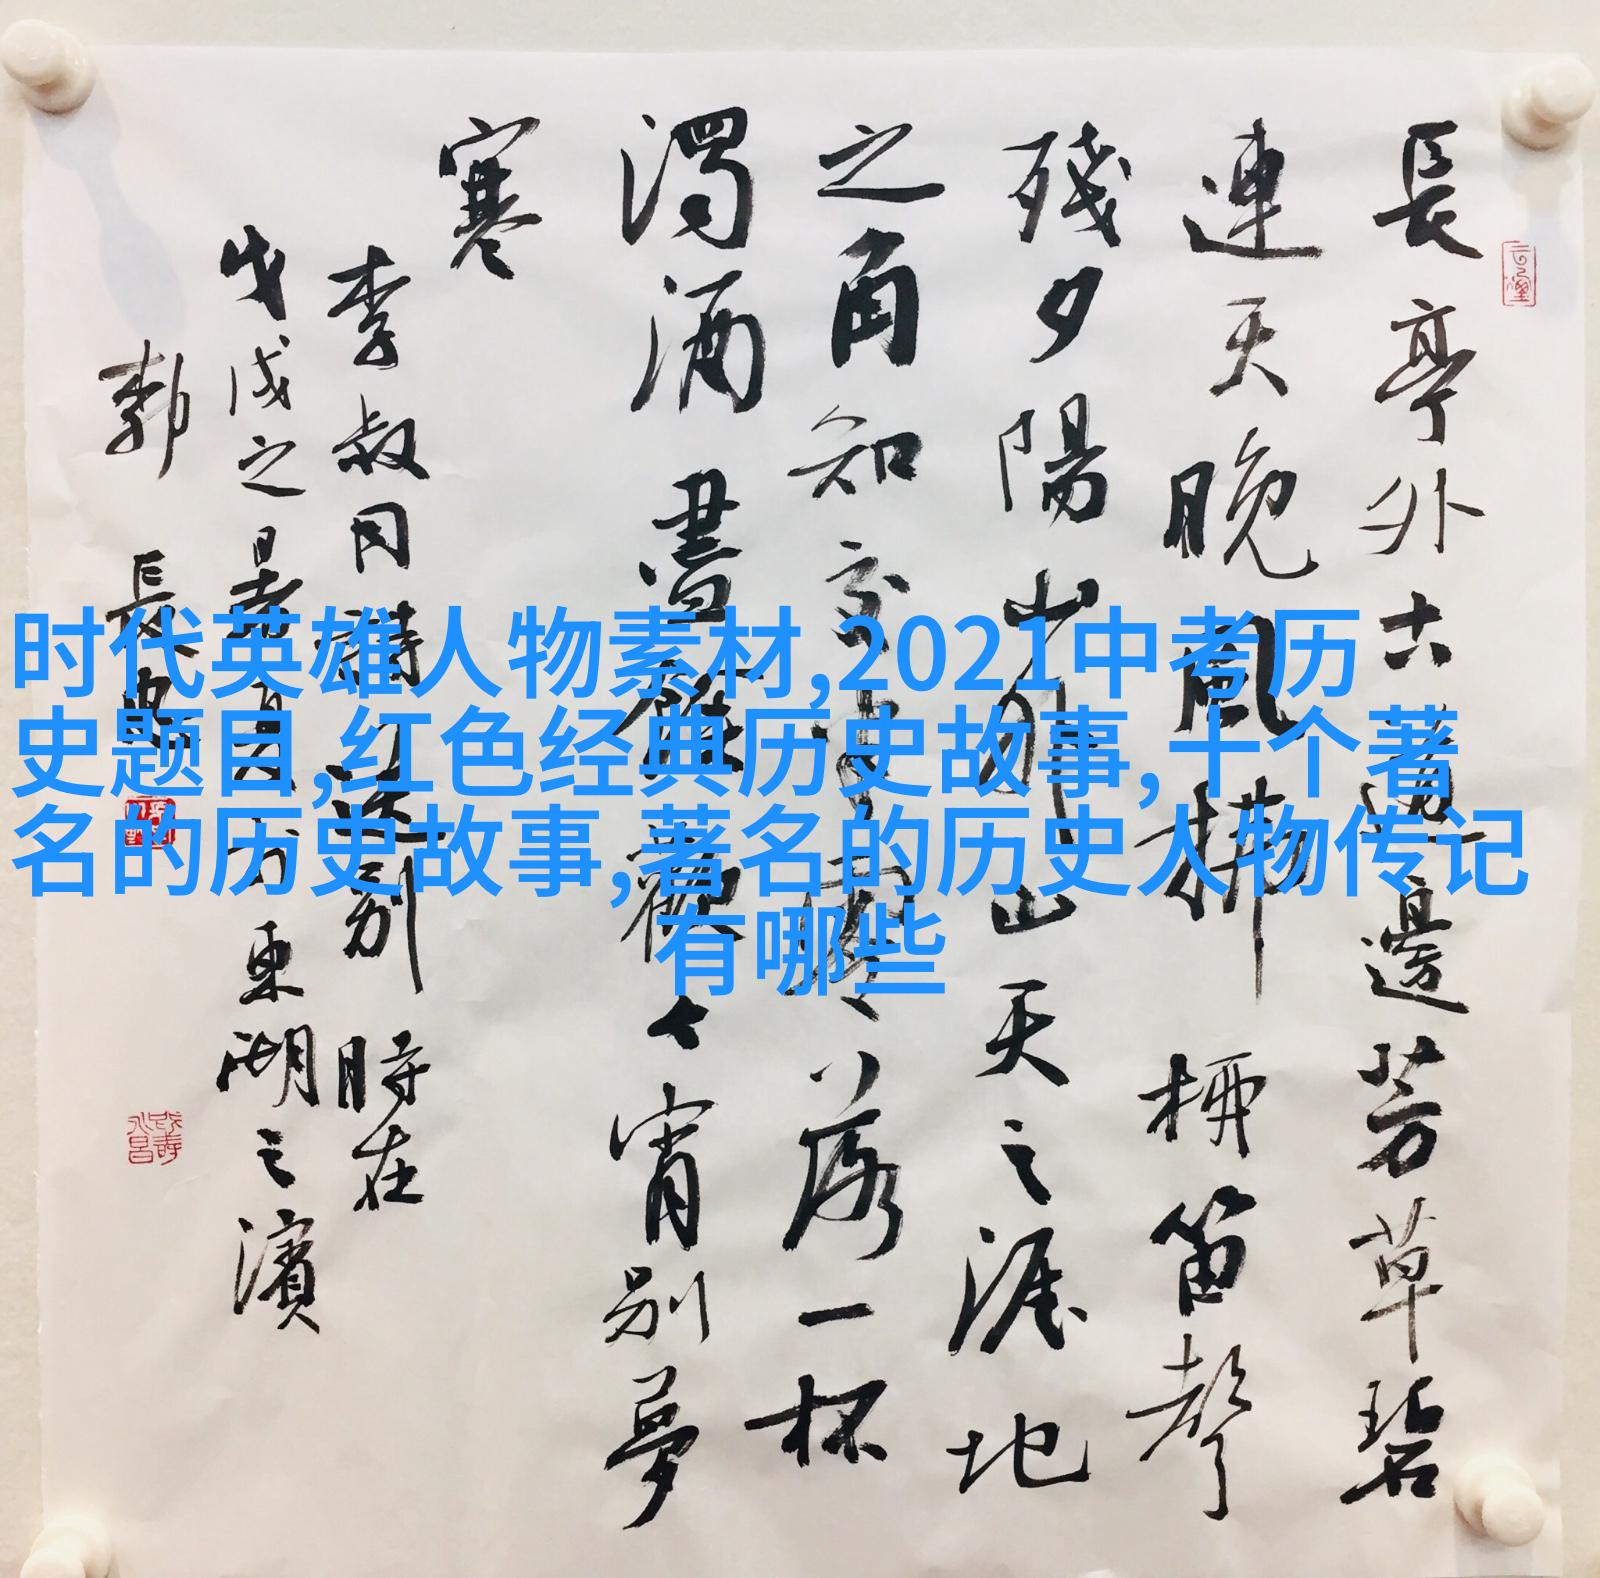 長亭外古道邊芳草碧
連天晚風拂柳笛聲
殘夕陽山外山天之涯地
之角知交半零落一杯
濁酒盡餘歡今宵別夢
寒
李叔同詩送别時在
戊戌之暑月於東湖之濱
郭長
时代英雄人物素材,2021中考历
史题目,红色经典历史故事,十个著
名的历史故事,著名的历史人物传记
有哪些